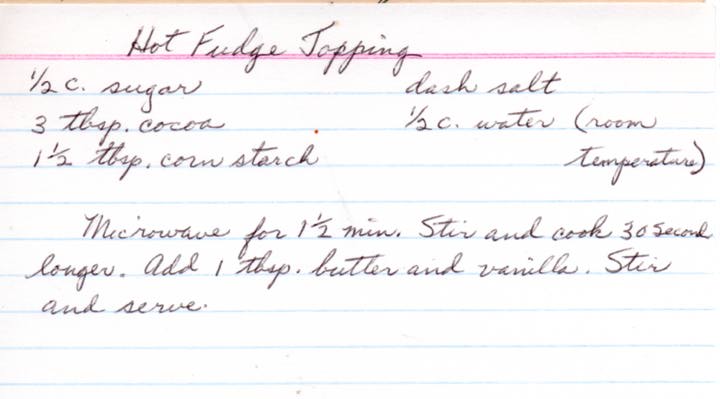 Hot Fudge Topping
1/2 c. sugar dash salt
3 tbsp. cocoa 1/2 c. water (room
1 1/2 tbsp. corn starch temperature)
Microwave for 1 1/2 min. Stir and cook 30 second
longer. Add 1 tbsp. butter and vanilla. Stir
and serve.